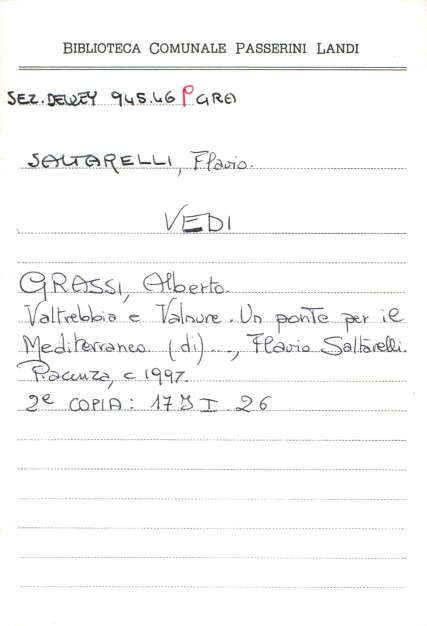 BIBLIOTECA COMUNALE PASSERINI LANDI
SEZ. DEWEY 945.46 P GRA
SALTARELLI, Flavio.
VEDI
GRASSI, Alberto.
Valtrebbia e Valnure. Un ponte per il
Mediterraneo. (di) ..., Flavio Saltarelli.
Piacenza, c 1997.
2ª COPIA: 17 J I 26